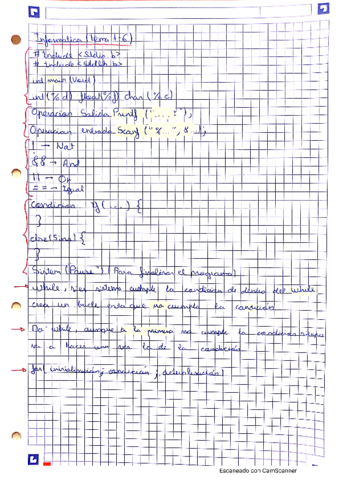 Informatica (tema 1-6)
# Include <Stdio.h>
# Include <Stdlib.h>
int main (Void)
int (% d) float (% f) char (% c)
Operacion Salida Printf ("...");
Operacion entrada Scanf ("% ", & );
! → Not
&& → And
|| → Or
== → Igual
Condicion If (....) {
}
else (Sino) {
}
System ("Pause") (Para finalizar el programa)
→ While, cumple la condicion de dentro del While
crea un bucle hasta que no cumpla la condición
→ Do while, aunque a la primera no cumple la condicion
va a hacer una vez lo de la condición.
→ for( inicialización; comparacion ; actualización)
Escaneado con CamScanner